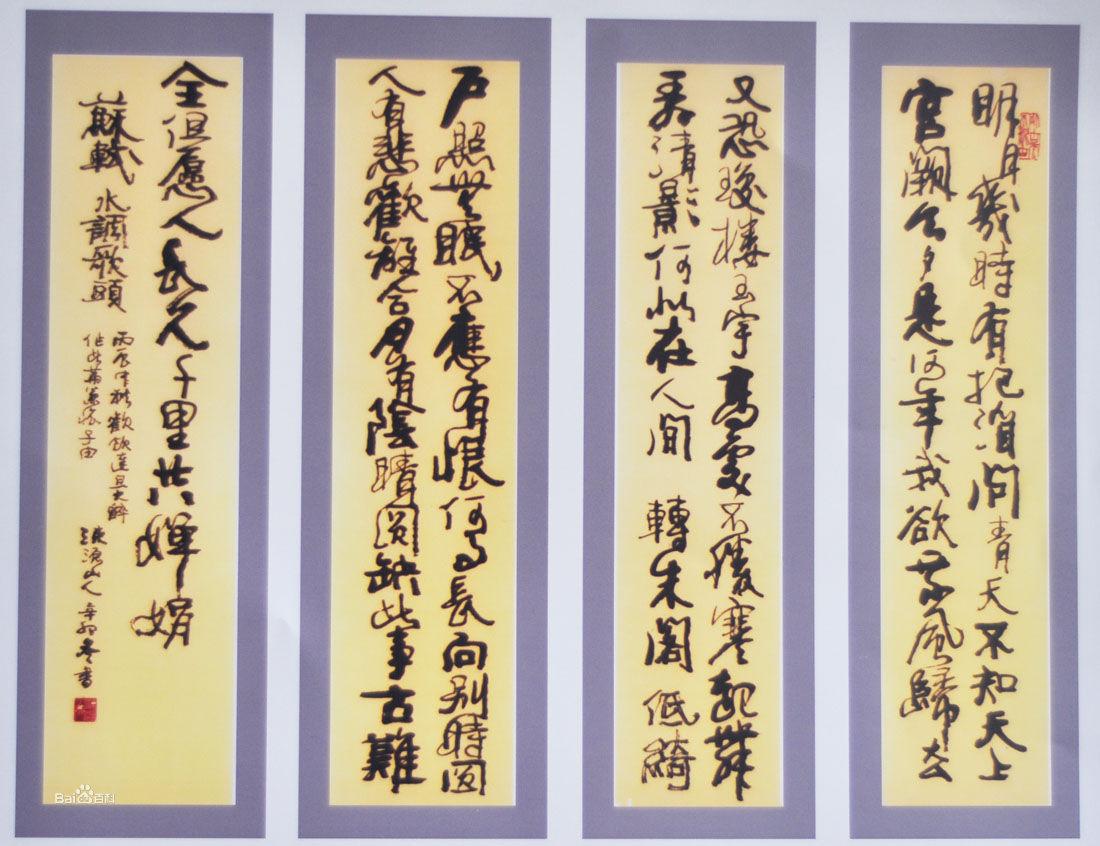 明月幾時有把酒問青天不知天上
宮闕今夕是何年我欲乘風歸去
又恐瓊樓玉宇高處不勝寒起舞
弄清影何似在人間 轉朱閣低綺
戶照無眠不應有恨何事長向別時圓
人有悲歡離合月有陰晴圓缺此事古難
全但願人長久千里共嬋娟
蘇軾 水調歌頭
丙辰中秋歡飲達旦大醉
作此篇兼懷子由
山人辛卯冬書
Bai百科